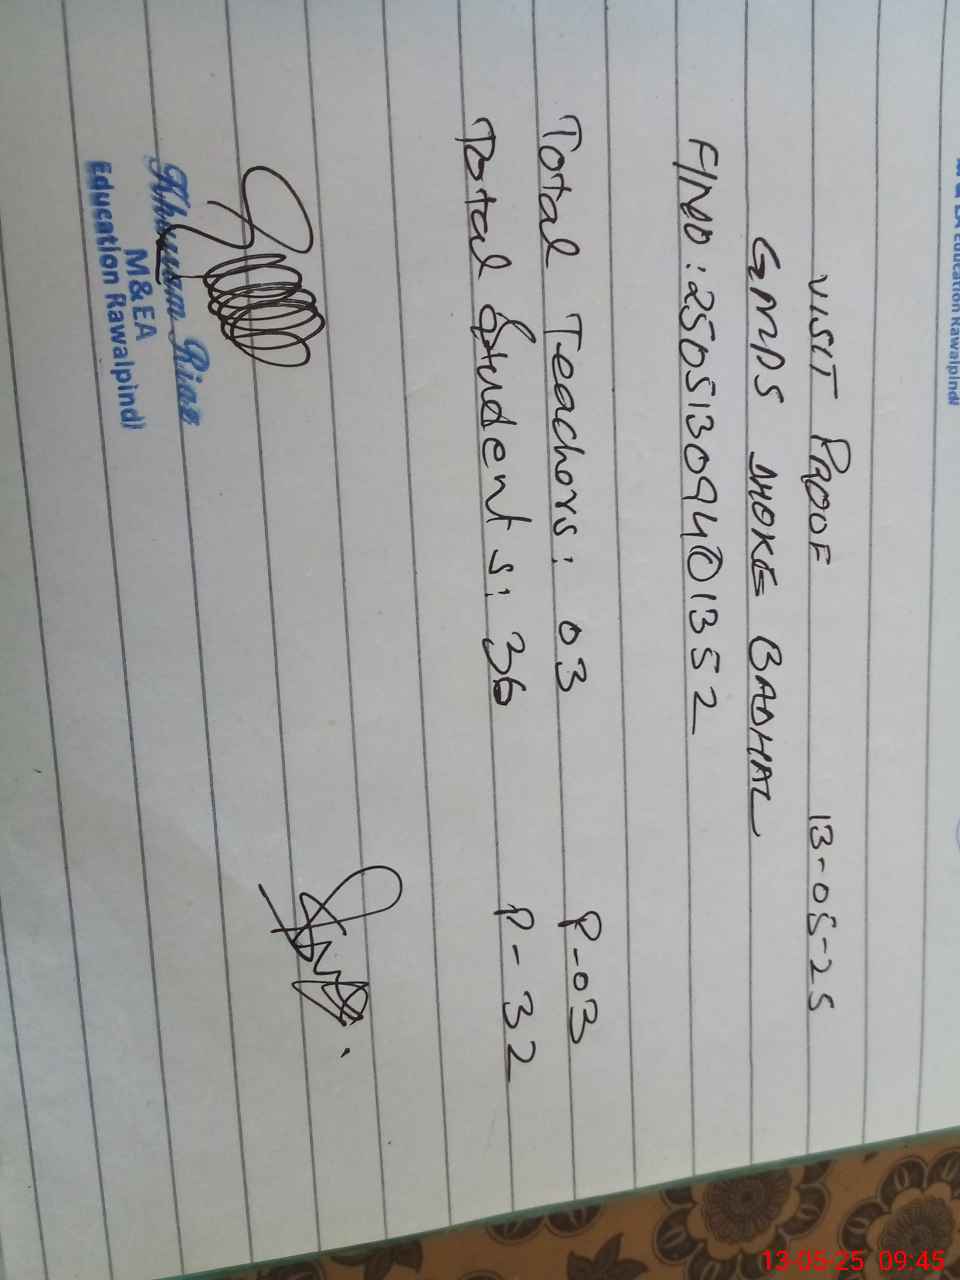 M & EA Education Rawalpindi
VISIT PROOF 13-05-25
GMPS DHOKE BADHAL
F/NO: 25051309401352
Total Teachers: 03 P-03
Total Students: 36 P-32
Khurram Riaz
M&EA
Education Rawalpindi
13-05-25 09:45